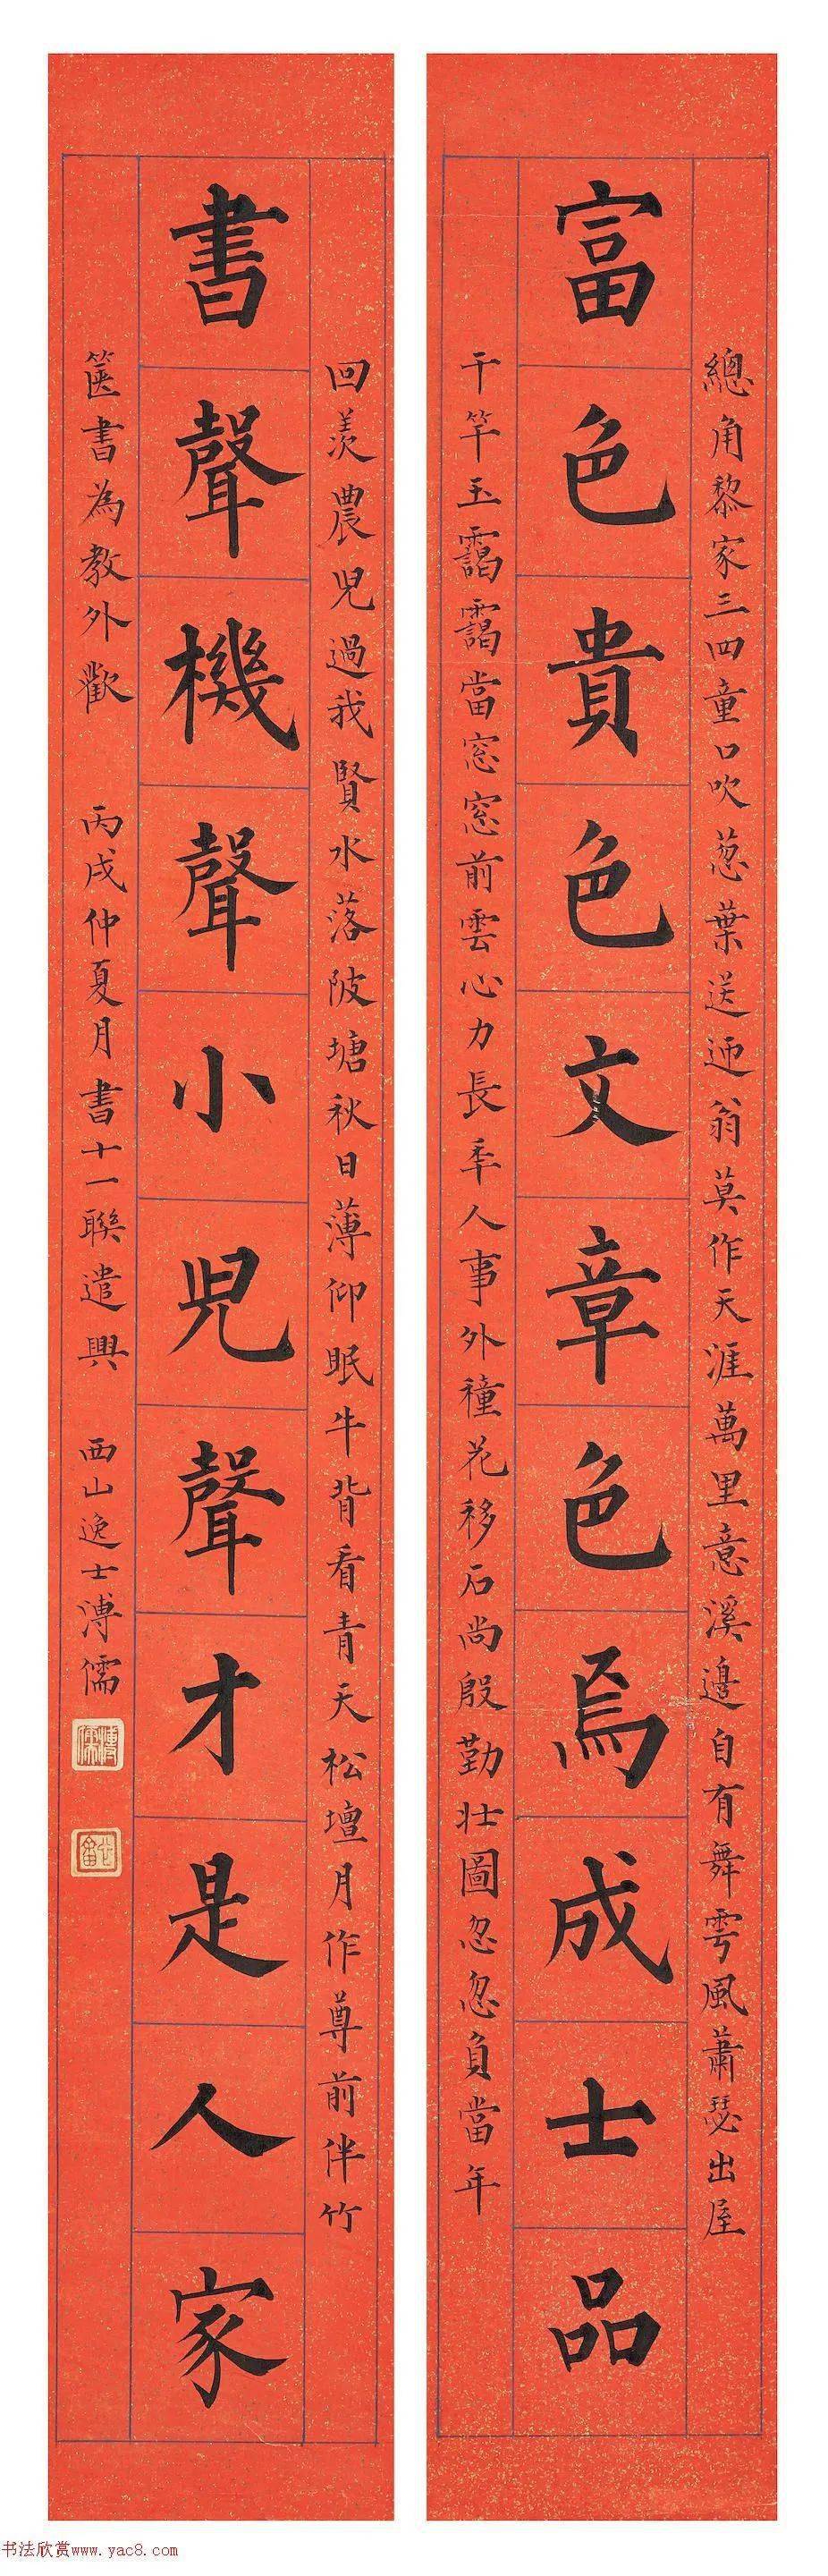 富色貴色文章色焉成士品
總角黎家三四童口吹葱葉送迎翁莫作天涯萬里意溪邊自有舞雩風蕭瑟出屋
千竿玉靄靄當窓窓前雲心力長年人事外種花移石尚殷勤壯圖忽忽負當年
書聲機聲小兒聲才是人家
回羨農兒過我賢水落陂塘秋日薄仰眠牛背看青天松壇月作尊前伴竹
篋書為教外歡 丙戌仲夏月書十一聯遣興 西山逸士溥儒
溥儒
心畬
书法欣赏www.yac8.com